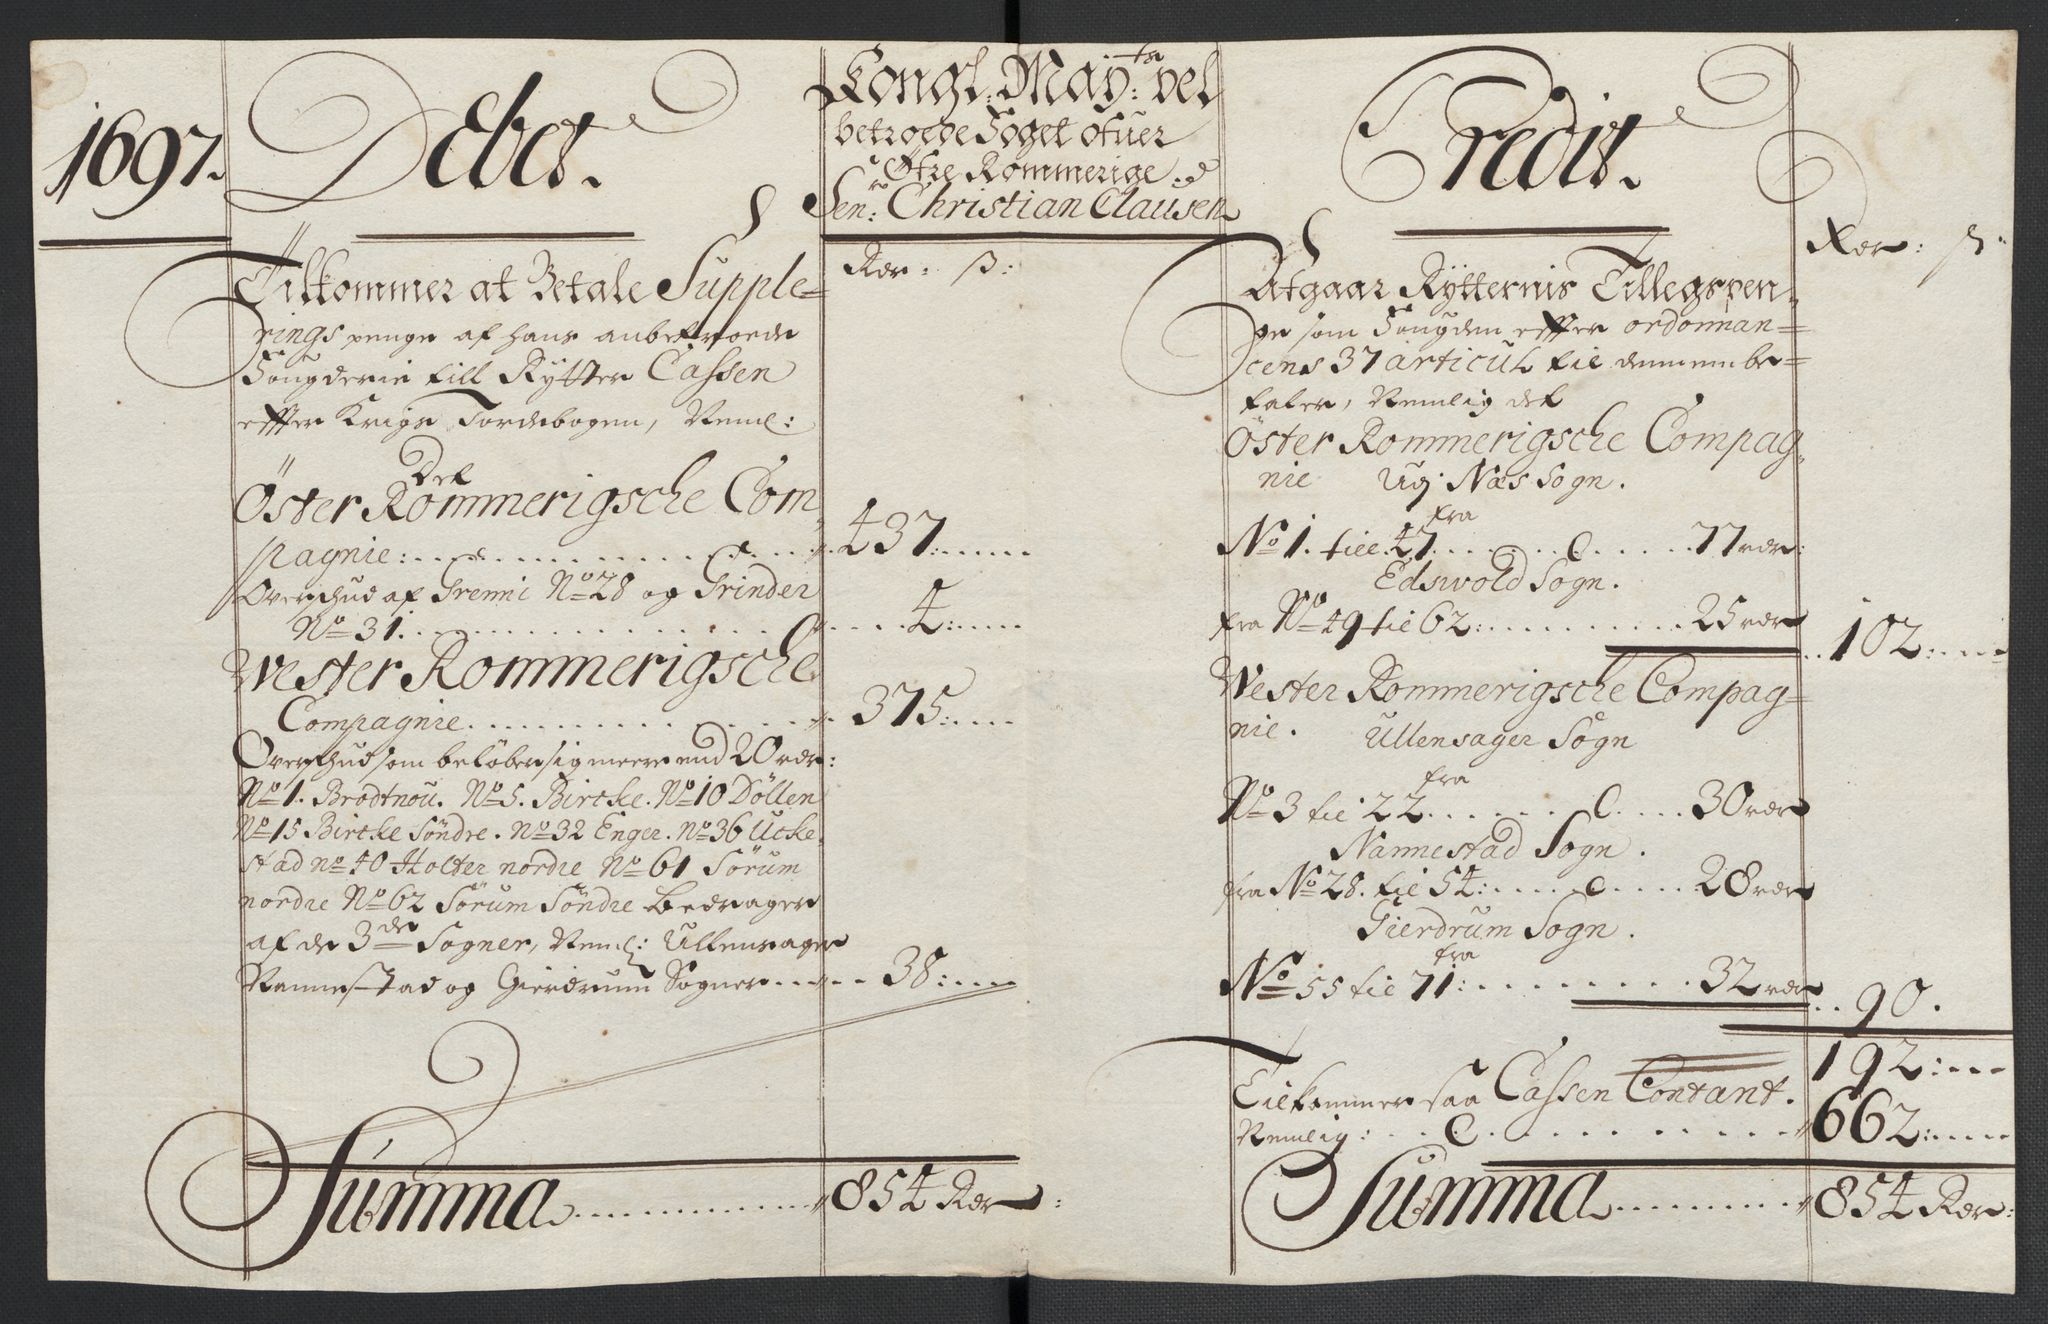 1697.
Debet.
Kongl: May:ts vel
betroede Foget ofuer
Öfre Rommerige.
Sen:r Christian Clausen
Credit.
Rdr: ß:
Tilkommer at Betale Supple=
rings penge af hans anbetroede
Fougderie till Rytter Cassen
effter Krigs Jordebogen, Neml:
Det
Öster Rommerigsche Com
pagnie: 437:
Overschud af Frenni No 28 og Grinder
No 31. 4:
Wester Rommerigsche
Compagnie. 375:
Overschud som beløber sig meere end 20 rdr:
No 1. Brodtnou. No 5. Birche. No 10 Döllen
No 15 Birche Söndre. No 32 Enger. No 36 Ucke
stad no 40 Holter nordre No 61 Sörum
nordre No 62 Sörum Söndre bedrager
af de 3de Sogner, Neml: Ullensager
Nannestad og Gierdrum Sogner 38:
Summa 854 Rdr:
Rdr: ß:
Afgaar Rytternis Tillegspen
ge som Fougden effter ordonnan=
cens 37 articul til dennem be=
taler, Nemlig det
Öster Rommerigsche Compag
nie Ug: Næs Sogn.
fra
No 1. till 47. 77 rdr:
Edswold Sogn.
fra No 49 til 62: 25 rdr
102:
Wester Rommerigsche Compag=
nie. Ullensager Sogn
fra
No 3 til 22. 30 rdr
Nannestad Sogn.
fra No 28. til 54: 28 rdr
Gierdrum Sogn.
fra
No 55 til 71: 32 rdr
90.
192:
Tilkommer saa Cassen Contant.
Nemlig: 662:
Summa 854 Rdr: